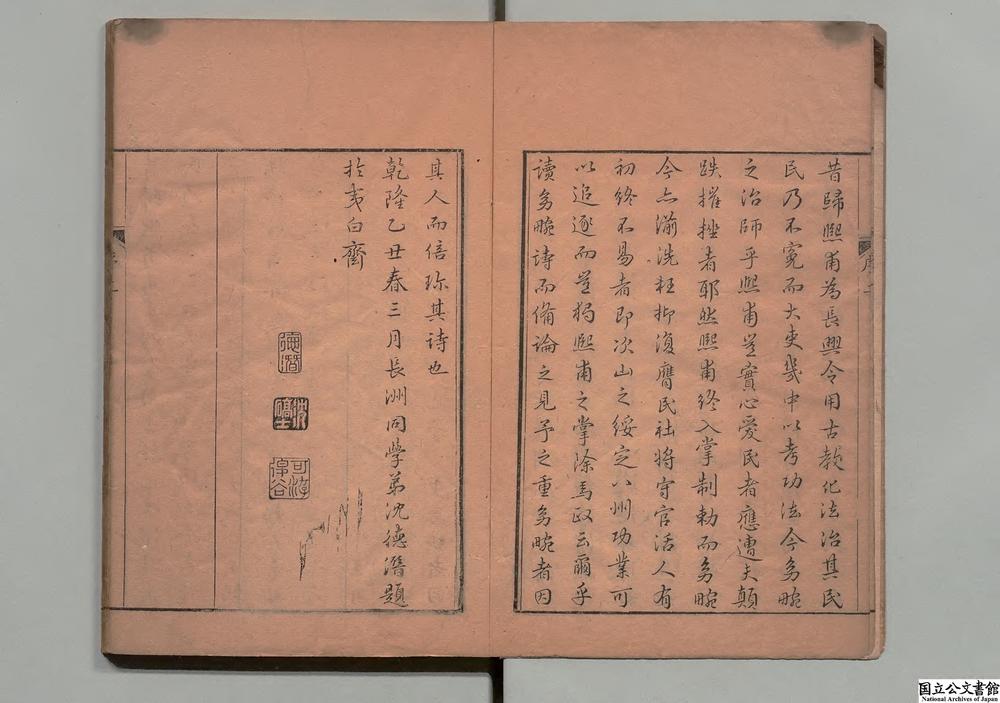 昔歸熙甫為長興令用古教化法治其民
民乃不冤而大吏幾中以考功法今多畹
之治師乎熙甫並實心愛民者應遭夫顛
跌摧挫者耶然熙甫終入掌制勅而多畹
今亦湔洗枉抑復膺民社將守官活人有
初終不易者即次山之綏定八州功業可
以追逐而並獨熙甫之掌除馬政云爾乎
讀多畹詩而備論之見予之重多畹者因
其人而倍珍其詩也
乾隆乙丑春三月長洲同學弟沈德潛題
於夷白齋
德潛
國立公文書館
National Archives of Japan